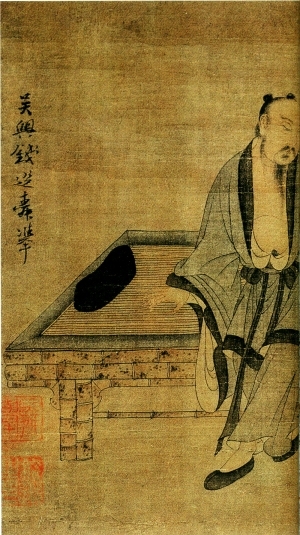 吳興錢選舜舉